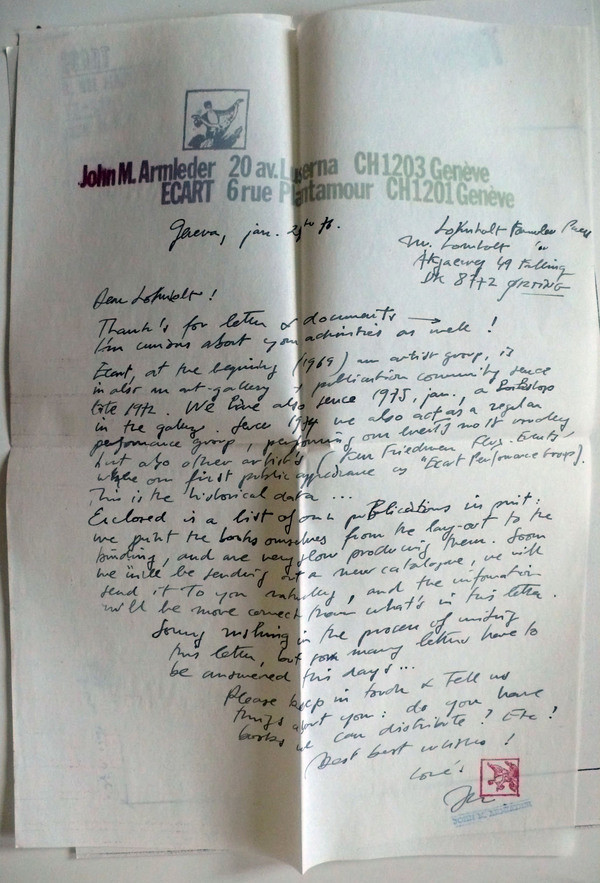 John M. Armleder 20 av. Luserna CH1203 Genève
ECART 6 rue Plantamour CH1201 Genève
Geneva, jan. 76.
Mr. Lomholt
49 Falling
DK 8772 ØRTING
Dear Lomholt!
Thank's for letter & documents →
I'm curious about your activities as well!
Ecart, at the begining (1969) an artist group, is
in also an art-gallery + publication community sence
late 1972. We have also sence 1975, jan., a bookshop
in the gallery. Sence 1974 we also act as a regular
performance group, performing our events most
but also other artist's (Ken Friedman Flux-Events,
where our first public appearance as "Ecart Performance Group).
This is the historical data ...
Enclosed is a list of our publications in print:
we print the books ourselves from the lay-out to the
binding, and are very slow producing them. Soon
we will be sending out a new catalogue, we will
send it to you naturally, and the information
will be more correct than what's in this letter.
Sorry rushing in the process of writing
this letter, but so many letters have to
be answered this days ...
Please keep in touch & tell us
things about you: do you have
books we can distribute? Etc!
Best best wishes!
Love's
JOHN M ARMLEDER